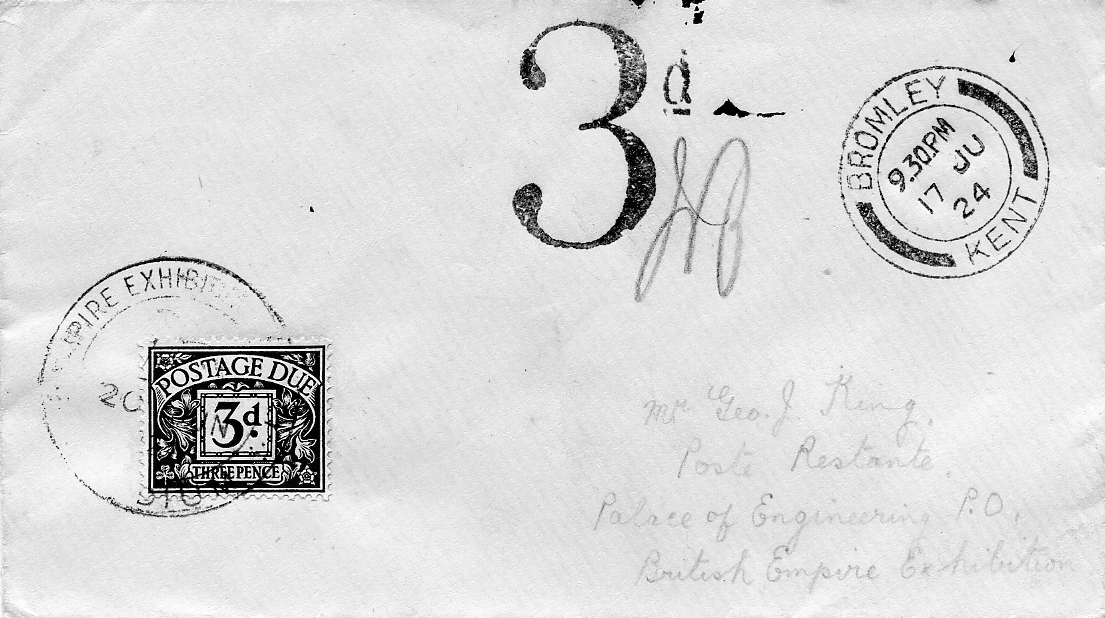 3d
BROMLEY
9.30PM
17 JU
24
KENT
EMPIRE EXHIBITION
20
POSTAGE DUE
3d.
THREE PENCE
Mr. Geo. J. King,
Poste Restante
Palace of Engineering P.O.,
British Empire Exhibition